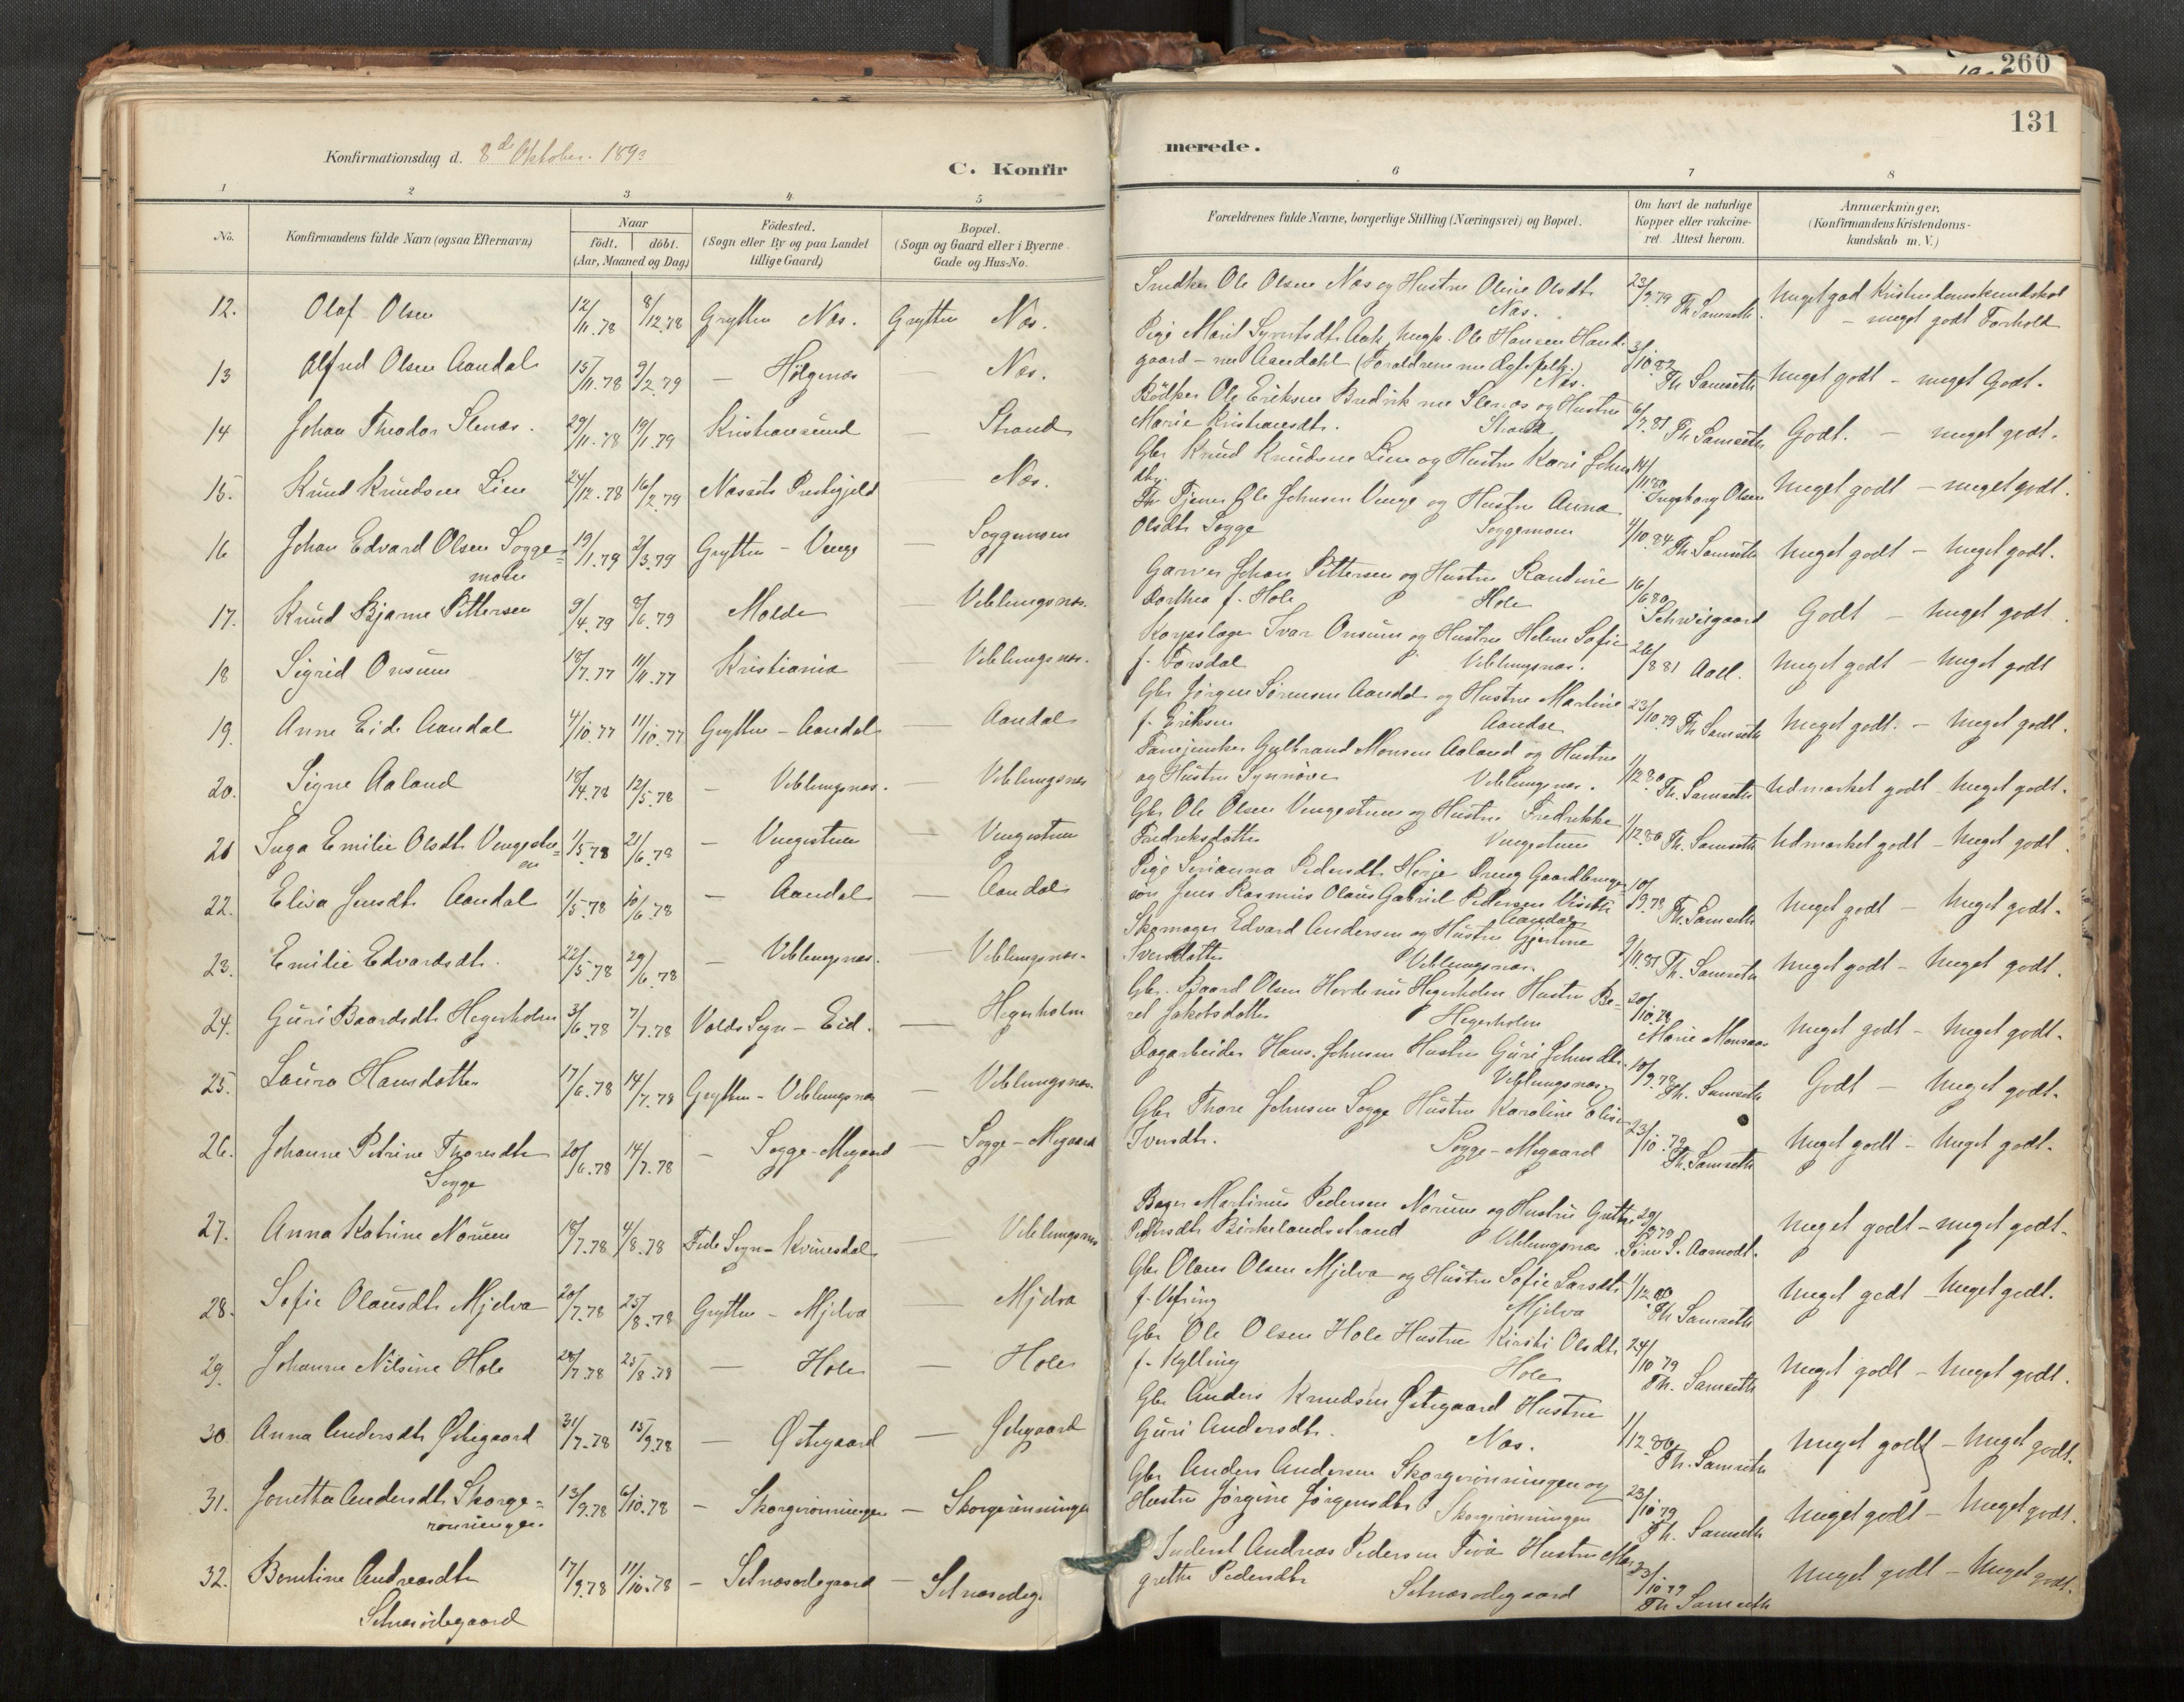 260
131
Konfirmationsdag d. 8de Oktober 1893
C. Konfirmerede.
1 2 3 4 5 6 7 8
No. Konfirmandens fulde Navn (ogsaa Efternavn) Naar födt. döbt. (Aar, Maaned og Dag) Födested. (Sogn eller By og paa Landet tillige Gaard) Bopæl. (Sogn og Gaard eller i Byerne Gade og Hus-No. Forældrenes fulde Navne, borgerlige Stilling (Næringsvei) og Bopæl. Om havt de naturlige Kopper eller vakcineret. Attest herom. Anmærkninger. (Konfirmandens Kristendomskundskab m. V.)
12. Olaf Olsen 12/11.78 8/12.78 Grytten Næs. Grytten Næs. Snedker Ole Olsen Næs og Hustru Oline Olsdtr
Næs. 23/9.79 Th. Samseth. Meget god Kristendomskundskab
– meget godt Forhold
13 Alfred Olsen Aandal 15/11.78 9/2.79 – Hølgenæs – Næs. Pige Marit Syvertsdtr Aak, Ungk. Ole Hansen
gaard – nu Aandahl (Forældrene nu Ægtefolk.)
Næs. 3/10.82 Th. Samseth Meget godt – meget Godt.
14 Johan Theodor Slenæs. 29/11.78 19/1.79 Kristiansund – Strand Bödker Ole Eriksen Bredvik nu Slenæs og Hustru
Marie Kristiansdtr. Strand 6/7.81 Th. Samseth Godt. – meget godt.
15. Knud Knudsen Lien 24/12.78 16/2.79 Næssets Prestegjeld Næs. Gbr Knud Knudsen Lien og Hustru Kari Johns
dtr. 14/11.80 Ingeborg Olsen Meget godt – meget godt.
16 Johan Edvard Olsen Sogge=
moen 19/1.79 2/3.79 Grytten – Venge – Soggemoen Tjener Ole Johnsen Venge og Hustru Anna
Olsdtr Sogge Soggemoen 4/10.84 Th. Samseth Meget godt – Meget godt.
17. Knud Bjarne Pettersen 9/4.79 8/6.79 Molde Veblungsnæs. Garver Johan Pettersen og Hustru Randine
Dorthea f. Hole Hole 16/6.80 Schweigaard Godt – Meget godt.
18 Sigrid Onsum 18/7.77 11/11.77 Kristiania – Veblungsnæs. Korpslæge Ivar Onsum og Hustru Helene Sofie
f. Forsdal Veblungsnæs. 26/8.81 Aall. Meget godt – Meget godt
19. Anne Eide Aandal 4/10.77 11/10.77 Grytten – Aandal – Aandal Gbr Jörgen Sörensen Aandal og Hustru Martine
f. Eriksen Aandal 23/10.79 Th. Samseth Meget godt. – Meget godt.
20. Signe Aaland 18/4.78 12/5.78 – Veblungsnæs. – Veblungsnæs Fanejunker Gulbrand Monsen Aaland og Hustru
og Hustru Synnöve Veblungsnæs. 1/12.80 Th. Samseth Udmærket godt – Meget godt.
21 Inga Emilie Olsdtr Vengestu=
en 1/5.78 21/6.78 – Vengestuen – Vengestuen Gbr Ole Olsen Vengestuen og Hustru Fredrikke
Fredriksdatter Vengestuen 1/12.80 Th. Samseth Udmærket godt – Meget godt.
22. Elisa Jensdtr Aandal 1/5.78 10/6.78 – Aandal – Aandal Pige Serianna Pedersdtr Herje Dreng Gaardbruger
sön Jens Rasmus Olaus Gabriel Pedersen
Aandal 10/9.78 Th. Samseth Meget godt – Meget godt.
23. Emilie Edvardsdtr. 22/5.78 29/6.78 – Veblungsnæs. – Veblungsnæs. Skomager Edvard Andersen og Hustru Gjertine
Iversdatter Veblungsnæs. 9/11.81 Th. Samseth Meget godt – Meget godt.
24. Guri Baardsdtr Hegerholm 3/6.78 7/7.78 Volds Sogn – Eid. – Hegerholm Gbr. Baard Olsen Horde nu Hegerholm Hustru Be=
ret Jakobsdatter Hegerholm 20/10.78 Marie Monsaas Meget godt – Meget godt.
25. Laura Hansdatter 17/6.78 14/7.78 Grytten – Veblungsnæs – Veblungsnæs. Dagarbeider Hans Johnsen Hustru Guri Johnsdtr.
Veblungsnæs. 10/9.78 Th. Samseth Godt – Meget godt.
26. Johanne Petrine Thoresdtr
Sogge 20/6.78 14/7.78 – Sogge-Megaard – Sogge – Megaard Gbr Thore Johnsen Sogge Hustru Karoline Elise
Iversdtr. Sogge – Megaard 23/10.79 Th. Samseth Meget godt – Meget godt.
27. Anna Katrine Norum 18/7.78 4/8.78 Fede Sogn – Kvinesdal Veblungsnæs Bager Martinus Pedersen Norum og Hustru
Pedersdtr Birkelandsstrand Veblungsnæs. S. Aamodt. Meget godt – meget godt.
28. Sofie Olausdtr Mjelva 20/7.78 25/8.78 Grytten – Mjelva – Mjelva Gbr Olaus Olsen Mjelva og Hustru Sofie Larsdtr
f. Mjelva 1/12.80 Th. Samseth Meget godt – Meget godt.
29. Johanne Nilsine Hole 28/7.78 25/8.78 – Hole – Hole Gbr Ole Olsen Hole Hustru Kirsti Olsdtr
f. Kylling Hole 24/10.79 Th. Samseth Meget godt – Meget godt.
30. Anna Andersdtr Östigaard 31/7.78 15/9.78 – Östigaard – Östigaard Gbr Anders Knudsen Östigaard Hustru
Guri Andersdtr. Næs. 1/12.80 Th. Samseth Meget godt – Meget godt.
31. Jonetta Andersdtr Skorge=
rönningen. 13/9.78 6/10.78 – Skorgerönningen – Skorgerönningen Gbr Anders Andersen Skorgerönningen og
Hustru Jörgine Jörgensdtr Skorgerönningen 23/10.79 Th. Samseth Meget godt – Meget godt.
32. Berntine Andreasdtr
Setnæsödegaard 17/9.78 11/10.78 – Setnæsödegaard – Setnæsödeg. Inderst Andreas Pedersen Hustru Mar
grethe Pedersdtr Setnæsödegaard 23/10.79 Th. Samseth Meget godt – Meget godt.